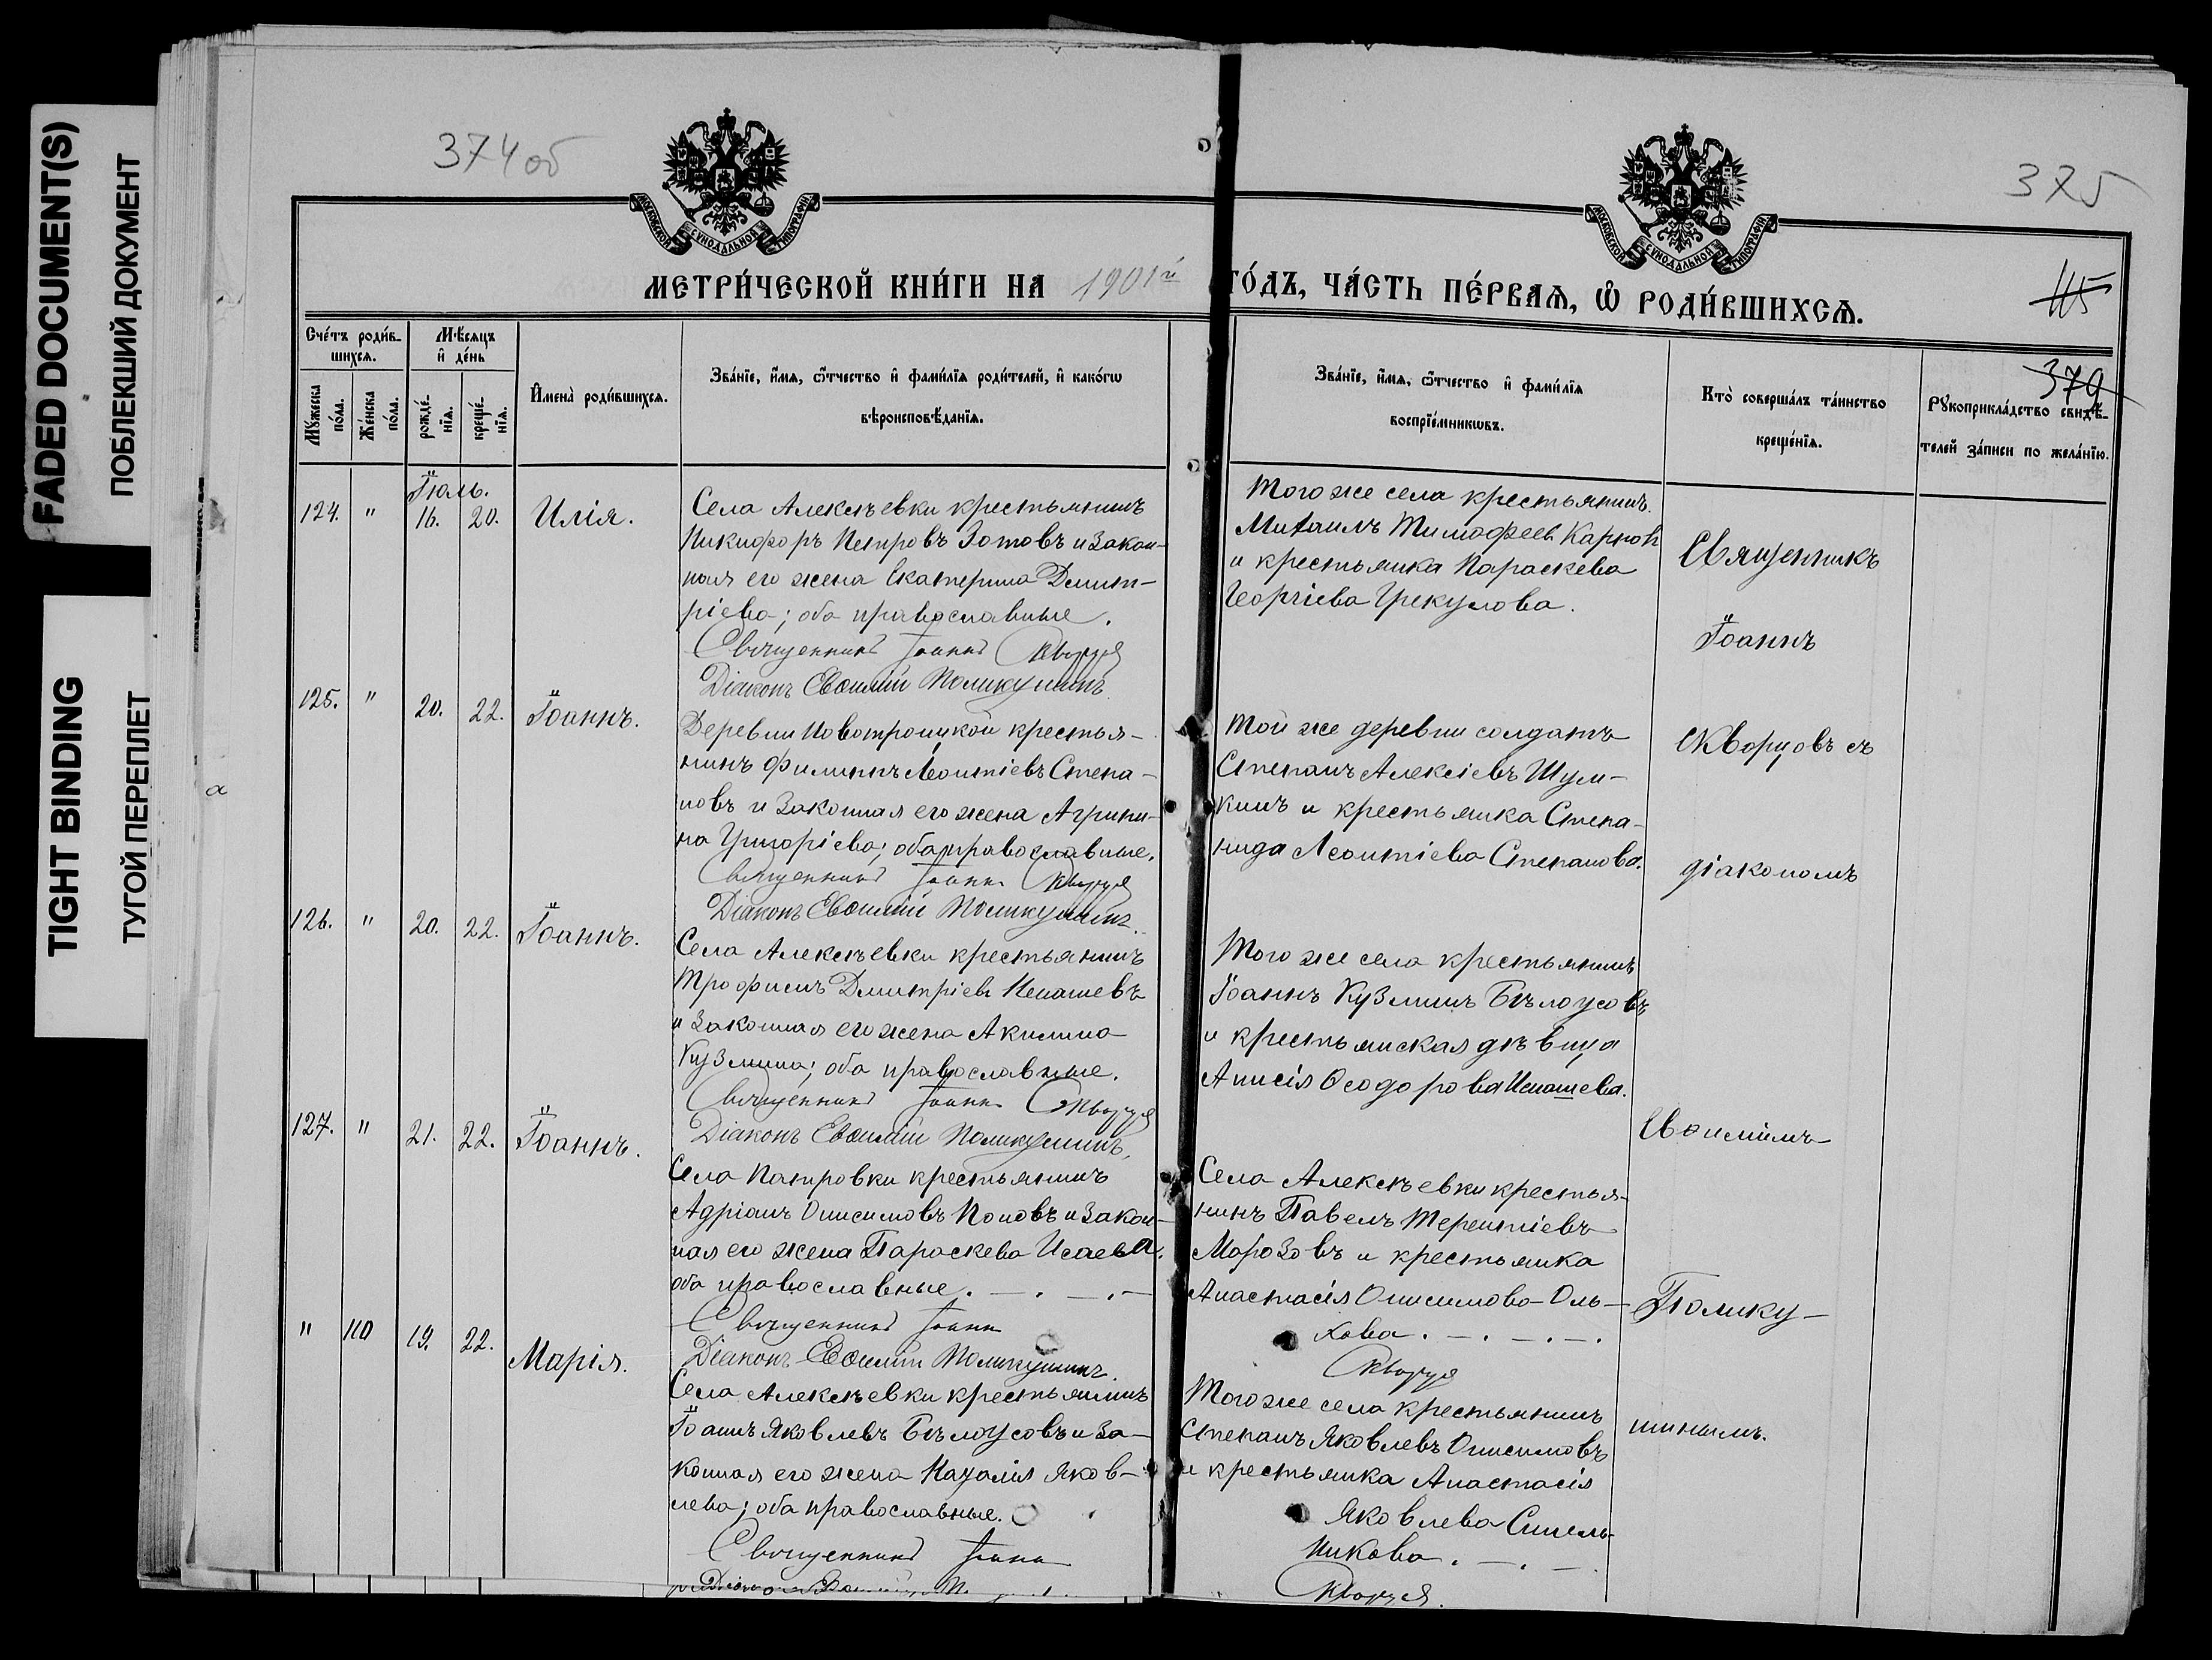 FADED DOCUMENT(S)
ПОБЛЕКШИЙ ДОКУМЕНТ
TIGHT BINDING
ТУГОЙ ПЕРЕПЛЕТ
374 об
375
МОСКОВСКОЙ СѴНОДАЛЬНОЙ ТИПОГРАФІИ
МОСКОВСКОЙ СѴНОДАЛЬНОЙ ТИПОГРАФІИ
МЕТРИ́ЧЕСКОЙ КНИ́ГИ НА 1901й ГО́ДЪ, ЧА́СТЬ ПЕ́РВАѦ, Ѽ РОДИ́ВШИХСѦ.
115
379
Сче́тъ роди́в-
шихся.
Мꙋжеска по́ла.
Же́нска по́ла.
Мѣсяцъ и де́нь
рожде́-
нїя.
креще́-
нїя.
Имена̀ роди́вшихся.
Зва́нїе, и́мя, ѻ҆́тчество и фами́лїя роди́телей, и како́гѡ
вѣроисповѣ́данїя.
Зва́нїе, и́мя, ѻ҆́тчество и фами́лїя
воспрїе́мникѡвъ.
Кто̀ соверша́лъ та́инство
креще́нїя.
Рꙋкоприкла́дство свидѣ́-
телей за́писи по жела́нїю.
Іюль.
124. " 16. 20. Илія.
Села Алексѣевки крестьянинъ
Никифоръ Петровъ Зотовъ и закон-
ная его жена Екатерина Димит-
ріева; оба православные.
Священникъ Іоаннъ Скворцов
Діаконъ Евѳимій Поликушинъ
Того же села крестьянинъ
Михаилъ Тимофеевъ Карпов
и крестьянка Параскева
Георгіева Грекулова.
125. " 20. 22. Іоаннъ.
Деревни Новотроицкой крестья-
нинъ Филиппъ Леонтіевъ Степа-
новъ и законная его жена Агрипи-
на Григоріева; оба православные.
Священникъ Іоаннъ Скворцов
Діаконъ Евѳимій Поликушинъ.
Той же деревни солдатъ
Степанъ Алексіевъ Шум-
кинъ и крестьянка Степа-
нида Леонтіева Степанова.
126. " 20. 22. Іоаннъ.
Села Алексѣевки крестьянинъ
Трофимъ Димитріевъ Ненашевъ
и законная его жена Акилина
Кузмина; оба православные.
Священникъ Іоаннъ Скворцов
Діаконъ Евѳимій Поликушинъ.
Того же села крестьянинъ
Іоаннъ Кузминъ Бѣлоусовъ
и крестьянская дѣвица
Анисія Ѳеодорова Ненашева.
127. " 21. 22. Іоаннъ.
Села Патровки крестьянинъ
Адріанъ Онисимовъ Поповъ и закон-
ная его жена Параскева Исаева.
оба православные.
Священникъ Іоаннъ
Діаконъ Евѳимій Поликушинъ.
Села Алексѣевки крестья-
нинъ Павелъ Терентіевъ
Морозовъ и крестьянка
Анастасія Онисимова Оль-
хова.
Скворцов
" 110 19. 22. Марія.
Села Алексѣевки крестьянинъ
Іоаннъ Яковлевъ Бѣлоусовъ и за-
конная его жена Наталія Яков-
лева; оба православные.
Священникъ Іоаннъ
Того же села крестьянинъ
Степанъ Яковлевъ Онисимовъ
и крестьянка Анастасія
Яковлева Синель-
никова.
Скворцов
Священникъ
Іоаннъ
Скворцовъ съ
діакономъ
Евѳиміемъ
Полику-
шинымъ.